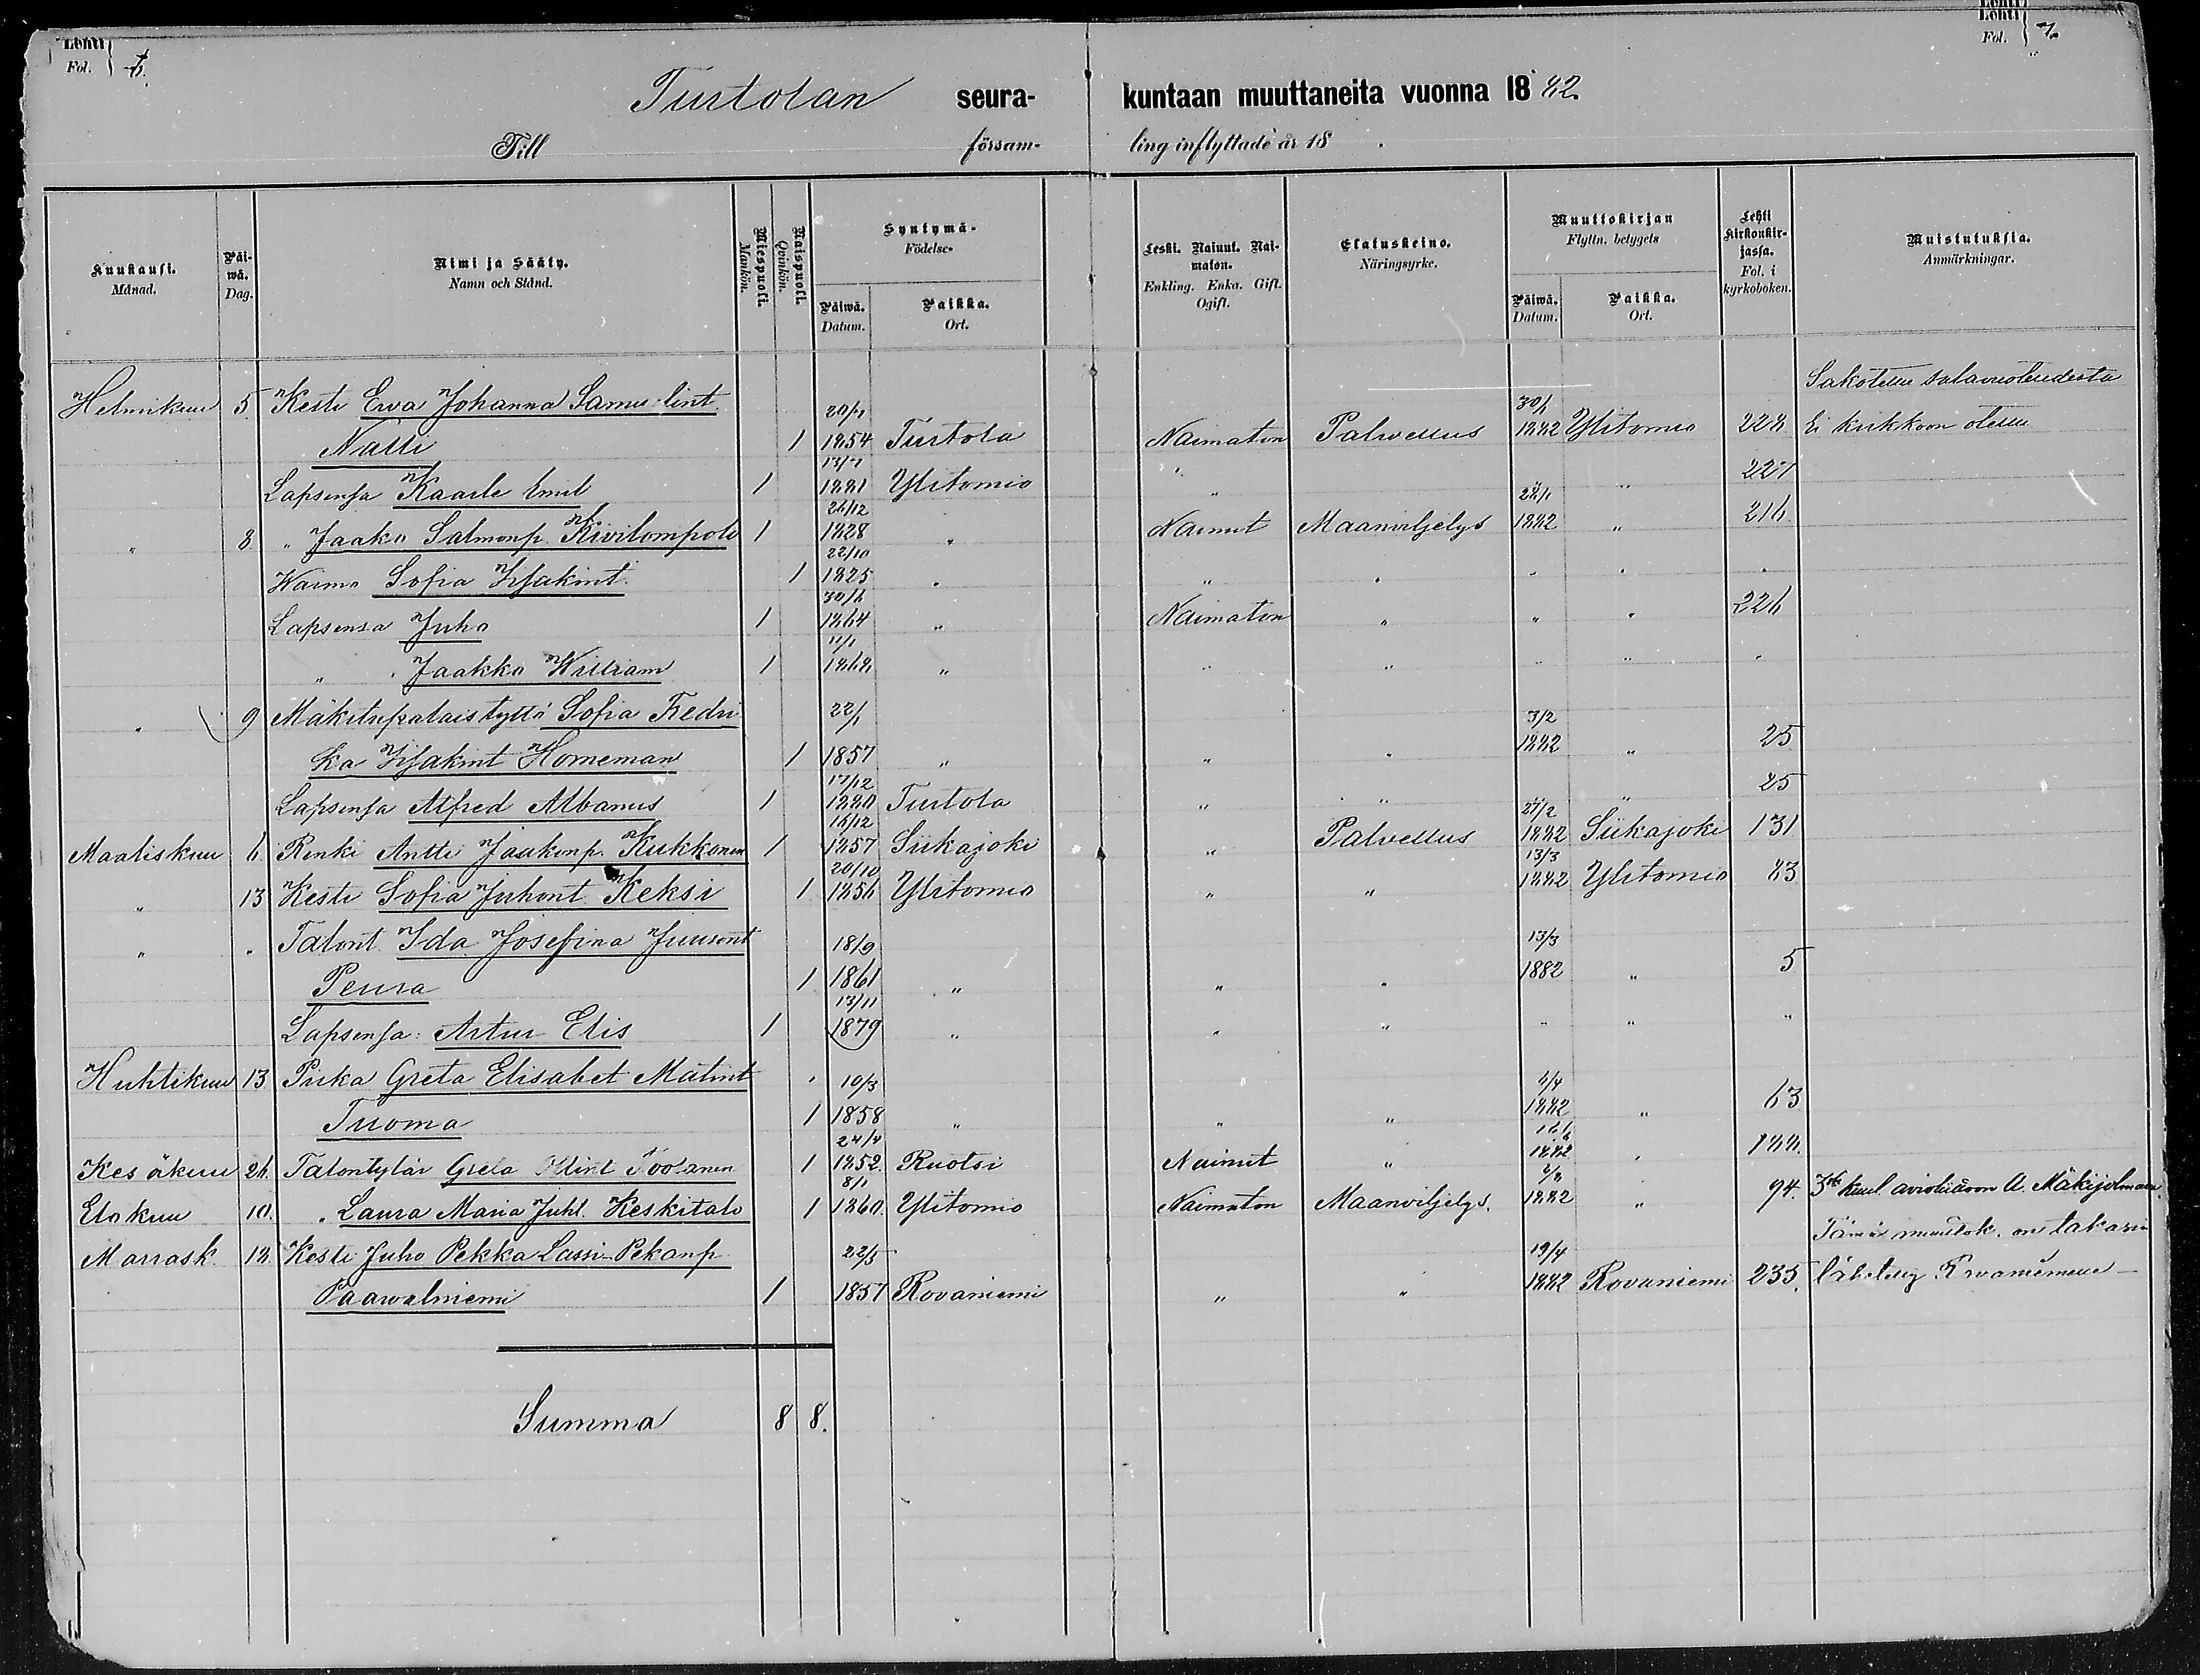 Lehti Fol. 7.
Turtolan seurakuntaan muuttaneita vuonna 1882.
Till församling inflyttade år 18 .
Kuukausi. Månad. Päiwä. Dag. Nimi ja Sääty. Namn och Stånd. Miespuoli. Mankön. Naispuoli. Qvinkön. Syntymä- Födelse- Päiwä. Datum. Paikka. Ort. Leski. Naiuut. Naimaton. Enkling. Enka. Gift. Ogift. Elatuskeino. Näringsyrke. Muuttokirjan Flyttn. betygets Päiwä. Datum. Paikka. Ort. Lehti Kirkonkirjassa. Fol. i kyrkoboken. Muistutuksia. Anmärkningar.
Sakotettu salavuoteudesta
Helmikuu 5 Kesti Ewa Johanna Samu-lint. 20/7 30/1
Nalli 1 1854 Turtola Naimaton Palwellus 1882 Ylitornio 228 Ei kirkkoon otettu
13/7
Lapsensa Kaarle Emil 1 1881 Ylitornio " " " 227
26/12 28/1
" 8 " Jaako Salmonp. Kivilompolo 1 1828 " Nainut Maanviljelys 1882 " 216
22/10
Waimo Sofia Isjakint. 1 1825 " " " " " "
30/6
Lapsensa Juho 1 1864 " Naimaton " " " 226
" " Jaakko William 1 1868 " " " " " "
" 9 Mäkitupalaistyttö Sofia Fredri 22/1 3/2
ka Isjakint Horneman 1 1857 " " " 1882 " 25
17/12
Lapsensa Alfred Albanus 1 1880 Turtola " " " " 25
16/12 27/2
Maaliskuu 6 Renki Antti Jaakonp. Kukkonen 1 1857 Siikajoki " Palvellus 1882 Siikajoki 131
20/10 13/3
" 13 Kesti Sofia Juhont. Keksi 1 1856 Ylitornio " " 1882 Ylitornio 83
" " Talont. Ida Josefina Juusont 18/9 13/3
Peura 1 1861 " " " 1882 " 5
13/11
Lapsensa: Artur Elis 1 1879 " " " " " "
Huhtikuu 13 Piika Greta Elisabet Mätint 10/3 6/4
Tuoma 1 1858 " " " 1882 " 63
24/4
Kesäkuu 26 Talontytär Greta 1 1852. Ruotsi Nainut " 1882 " 188.
8/1
Elokuu 10. " Laura Maria Juhl. Keskitalo 1 1860. Ylitornio Naimaton Maanviljelys. 1882 " 94. 3sti kuul. avioliittoon A. Mäkijelmaan.
Tämä muutok. on takasin
Marrask. 18. Kesti Juho Pekka Lassi-Pekanp 22/5 19/4
Paawalniemi 1 1857 Rovaniemi " " 1882 Rovaniemi 235. lähetetty Rovaniemelle
Summa 8 8.